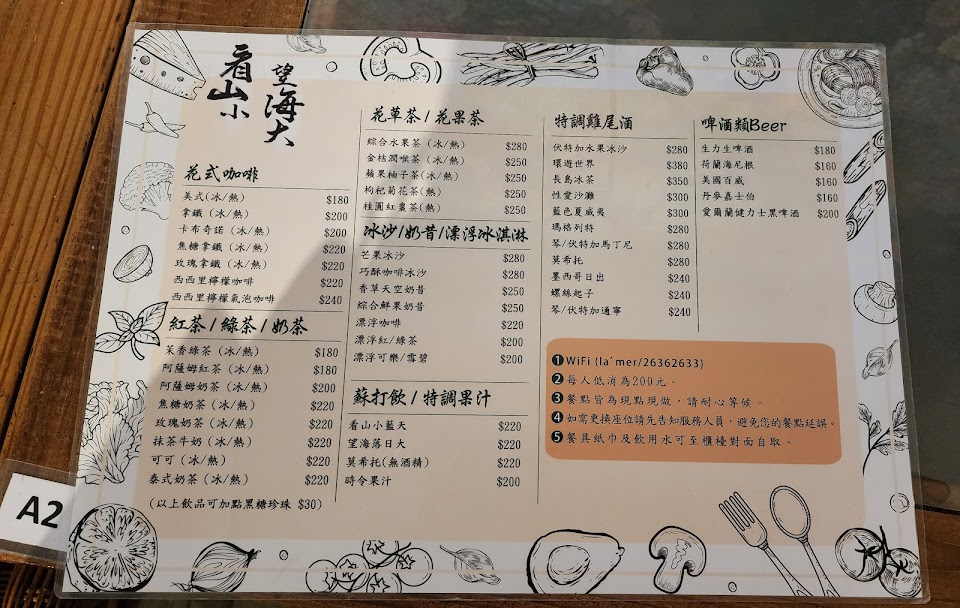 看山小
望海大
花式咖啡
美式(冰/熱) $180
拿鐵 (冰/熱) $200
卡布奇諾 (冰/熱) $200
焦糖拿鐵 (冰/熱) $220
玫瑰拿鐵 (冰/熱) $220
西西里檸檬咖啡 $220
西西里檸檬氣泡咖啡 $240
紅茶/綠茶/奶茶
茉香綠茶 (冰/熱) $180
阿薩姆紅茶 (冰/熱) $180
阿薩姆奶茶 (冰/熱) $200
焦糖奶茶 (冰/熱) $220
玫瑰奶茶 (冰/熱) $220
抹茶牛奶 (冰/熱) $220
可可 (冰/熱) $220
泰式奶茶 (冰/熱) $220
(以上飲品可加點黑糖珍珠 $30)
花草茶/花果茶
綜合水果茶 (冰/熱) $280
金桔潤喉茶 (冰/熱) $250
蘋果柚子茶(冰/熱) $250
枸杞菊花茶(熱) $250
桂圓紅棗茶(熱) $250
冰沙/奶昔/漂浮冰淇淋
芒果冰沙 $280
巧酥咖啡冰沙 $280
香草天空奶昔 $250
綜合鮮果奶昔 $250
漂浮咖啡 $220
漂浮紅/綠茶 $200
漂浮可樂/雪碧 $200
蘇打飲/特調果汁
看山小藍天 $220
望海落日大 $220
莫希托(無酒精) $220
時令果汁 $200
特調雞尾酒
伏特加水果冰沙 $280
環遊世界 $380
長島冰茶 $350
性愛沙灘 $300
藍色夏威夷 $300
瑪格列特 $280
琴/伏特加馬丁尼 $280
莫希托 $280
墨西哥日出 $240
螺絲起子 $240
琴/伏特加通寧 $240
啤酒類Beer
生力生啤酒 $180
荷蘭海尼根 $160
美國百威 $160
丹麥嘉士伯 $160
愛爾蘭健力士黑啤酒 $200
❶WiFi (la'mer/26362633)
❷每人低消為200元。
❸餐點皆為現點現做,請耐心等候。
❹如需更換座位請先告知服務人員,避免您的餐點延誤。
❺餐具紙巾及飲用水可至櫃檯對面自取。
A2